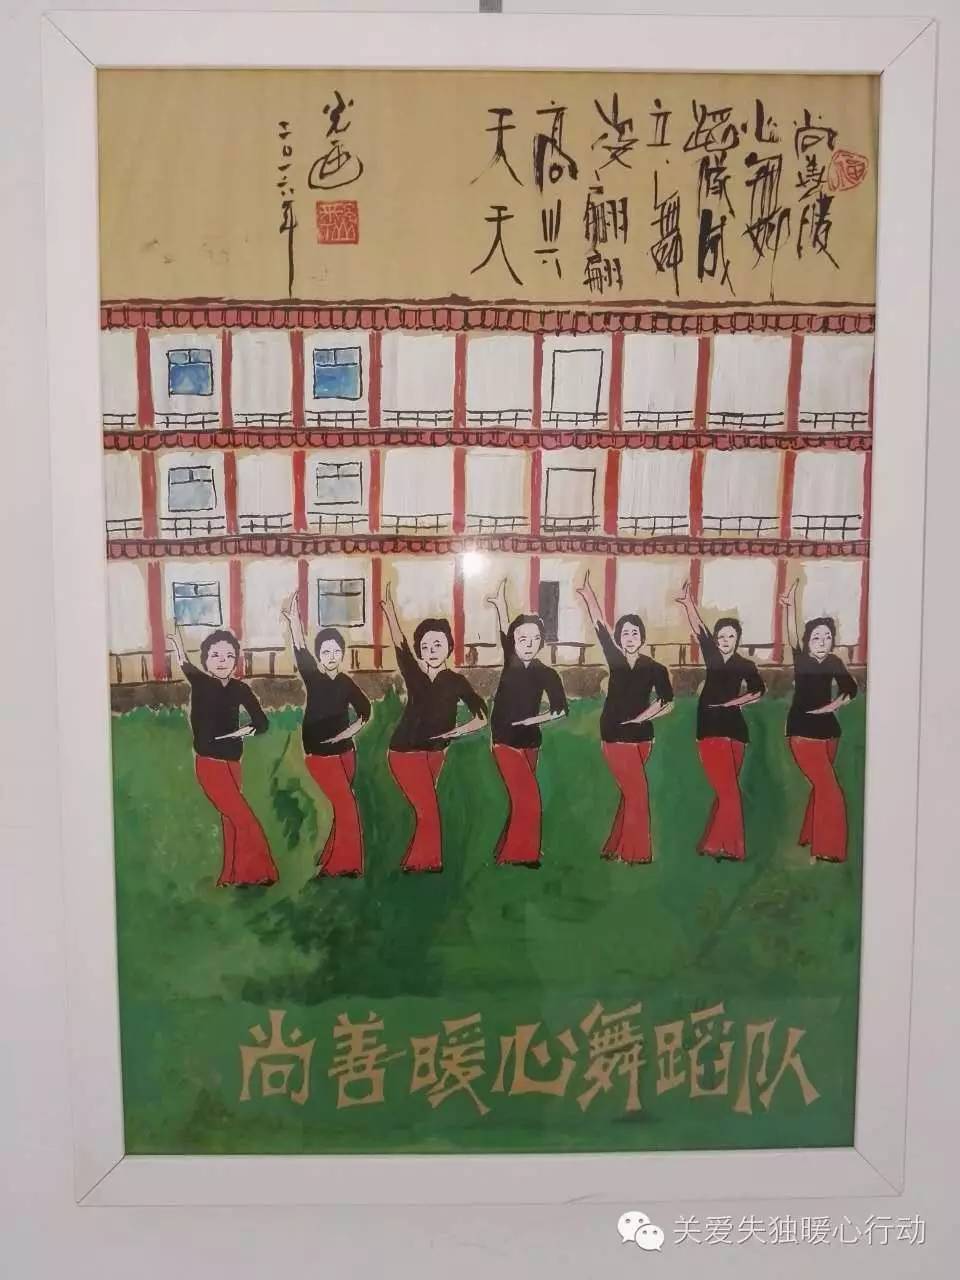 尚善暖
心
蹈隊成
立舞
姿翩翩
高興
天天
二〇一六年
尚善暖心舞蹈队
关爱失独暖心行动